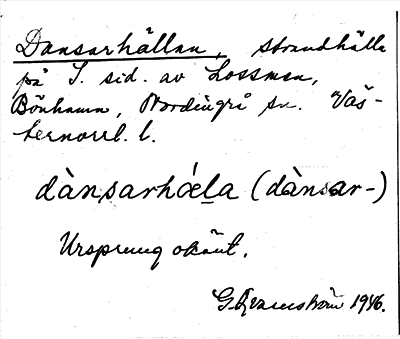 Dansarhällan, strandhälla
på S. sid. av Lossmen,
Bönhamn, Nordingrå sn. Väs-
ternorrl. l.
dànsarhǿl̲a (dànsar-)
Ursprung okänt.
G. Kvarnström 1946.